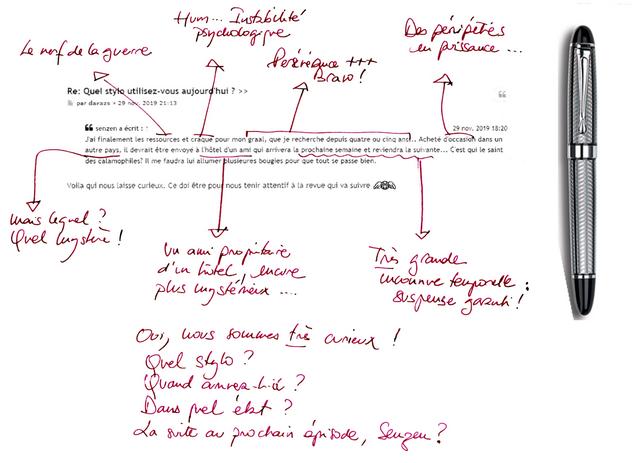 Hum... Instabilité
psychologique
Des péripéties
en puissance ...
Le nerf de la guerre
Persévérance +++
Bravo !
Re: Quel stylo utilisez-vous aujourd'hui ? >>
par darazs » 29 nov. 2019 21:13
senzen a écrit : ↑ 29 nov. 2019 18:20
J'ai finalement les ressources et craqué pour mon graal, que je recherche depuis quatre ou cinq ans... Acheté d'occasion dans un
autre pays, il devrait être envoyé à l'hôtel d'un ami qui arrivera la prochaine semaine et reviendra la suivante... C'est qui le saint
des calamophiles? Il me faudra lui allumer plusieurs bougies pour que tout se passe bien.
Voila qui nous laisse curieux. Ce doi être pour nous tenir attentif à la revue qui va suivre
mais lequel ?
Quel mystère !
Un ami propriétaire
d'un hôtel, encore
plus mystérieux ....
Très grande
inconnue temporelle :
suspense garanti !
Oui, nous sommes très curieux !
Quel stylo ?
Quand arrivera-t-il ?
Dans quel état ?
La suite au prochain épisode, Senzen ?